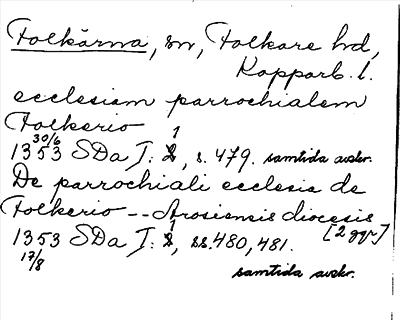 Folkärna, sn, Folkare hd,
Kopparb. l.
ecclesiam parrochialem
Folkerio
30/6 1
1353 SDa I: 2, s. 479. samtida avskr.
De parrochiali ecclesia de
Folkerio -- Arosiensis diocesis
1 [2 ggr]
1353 SDa I: 2, ss. 480, 481.
17/8
samtida avskr.